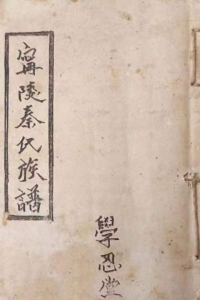 寗陵秦氏族譜
學忍堂